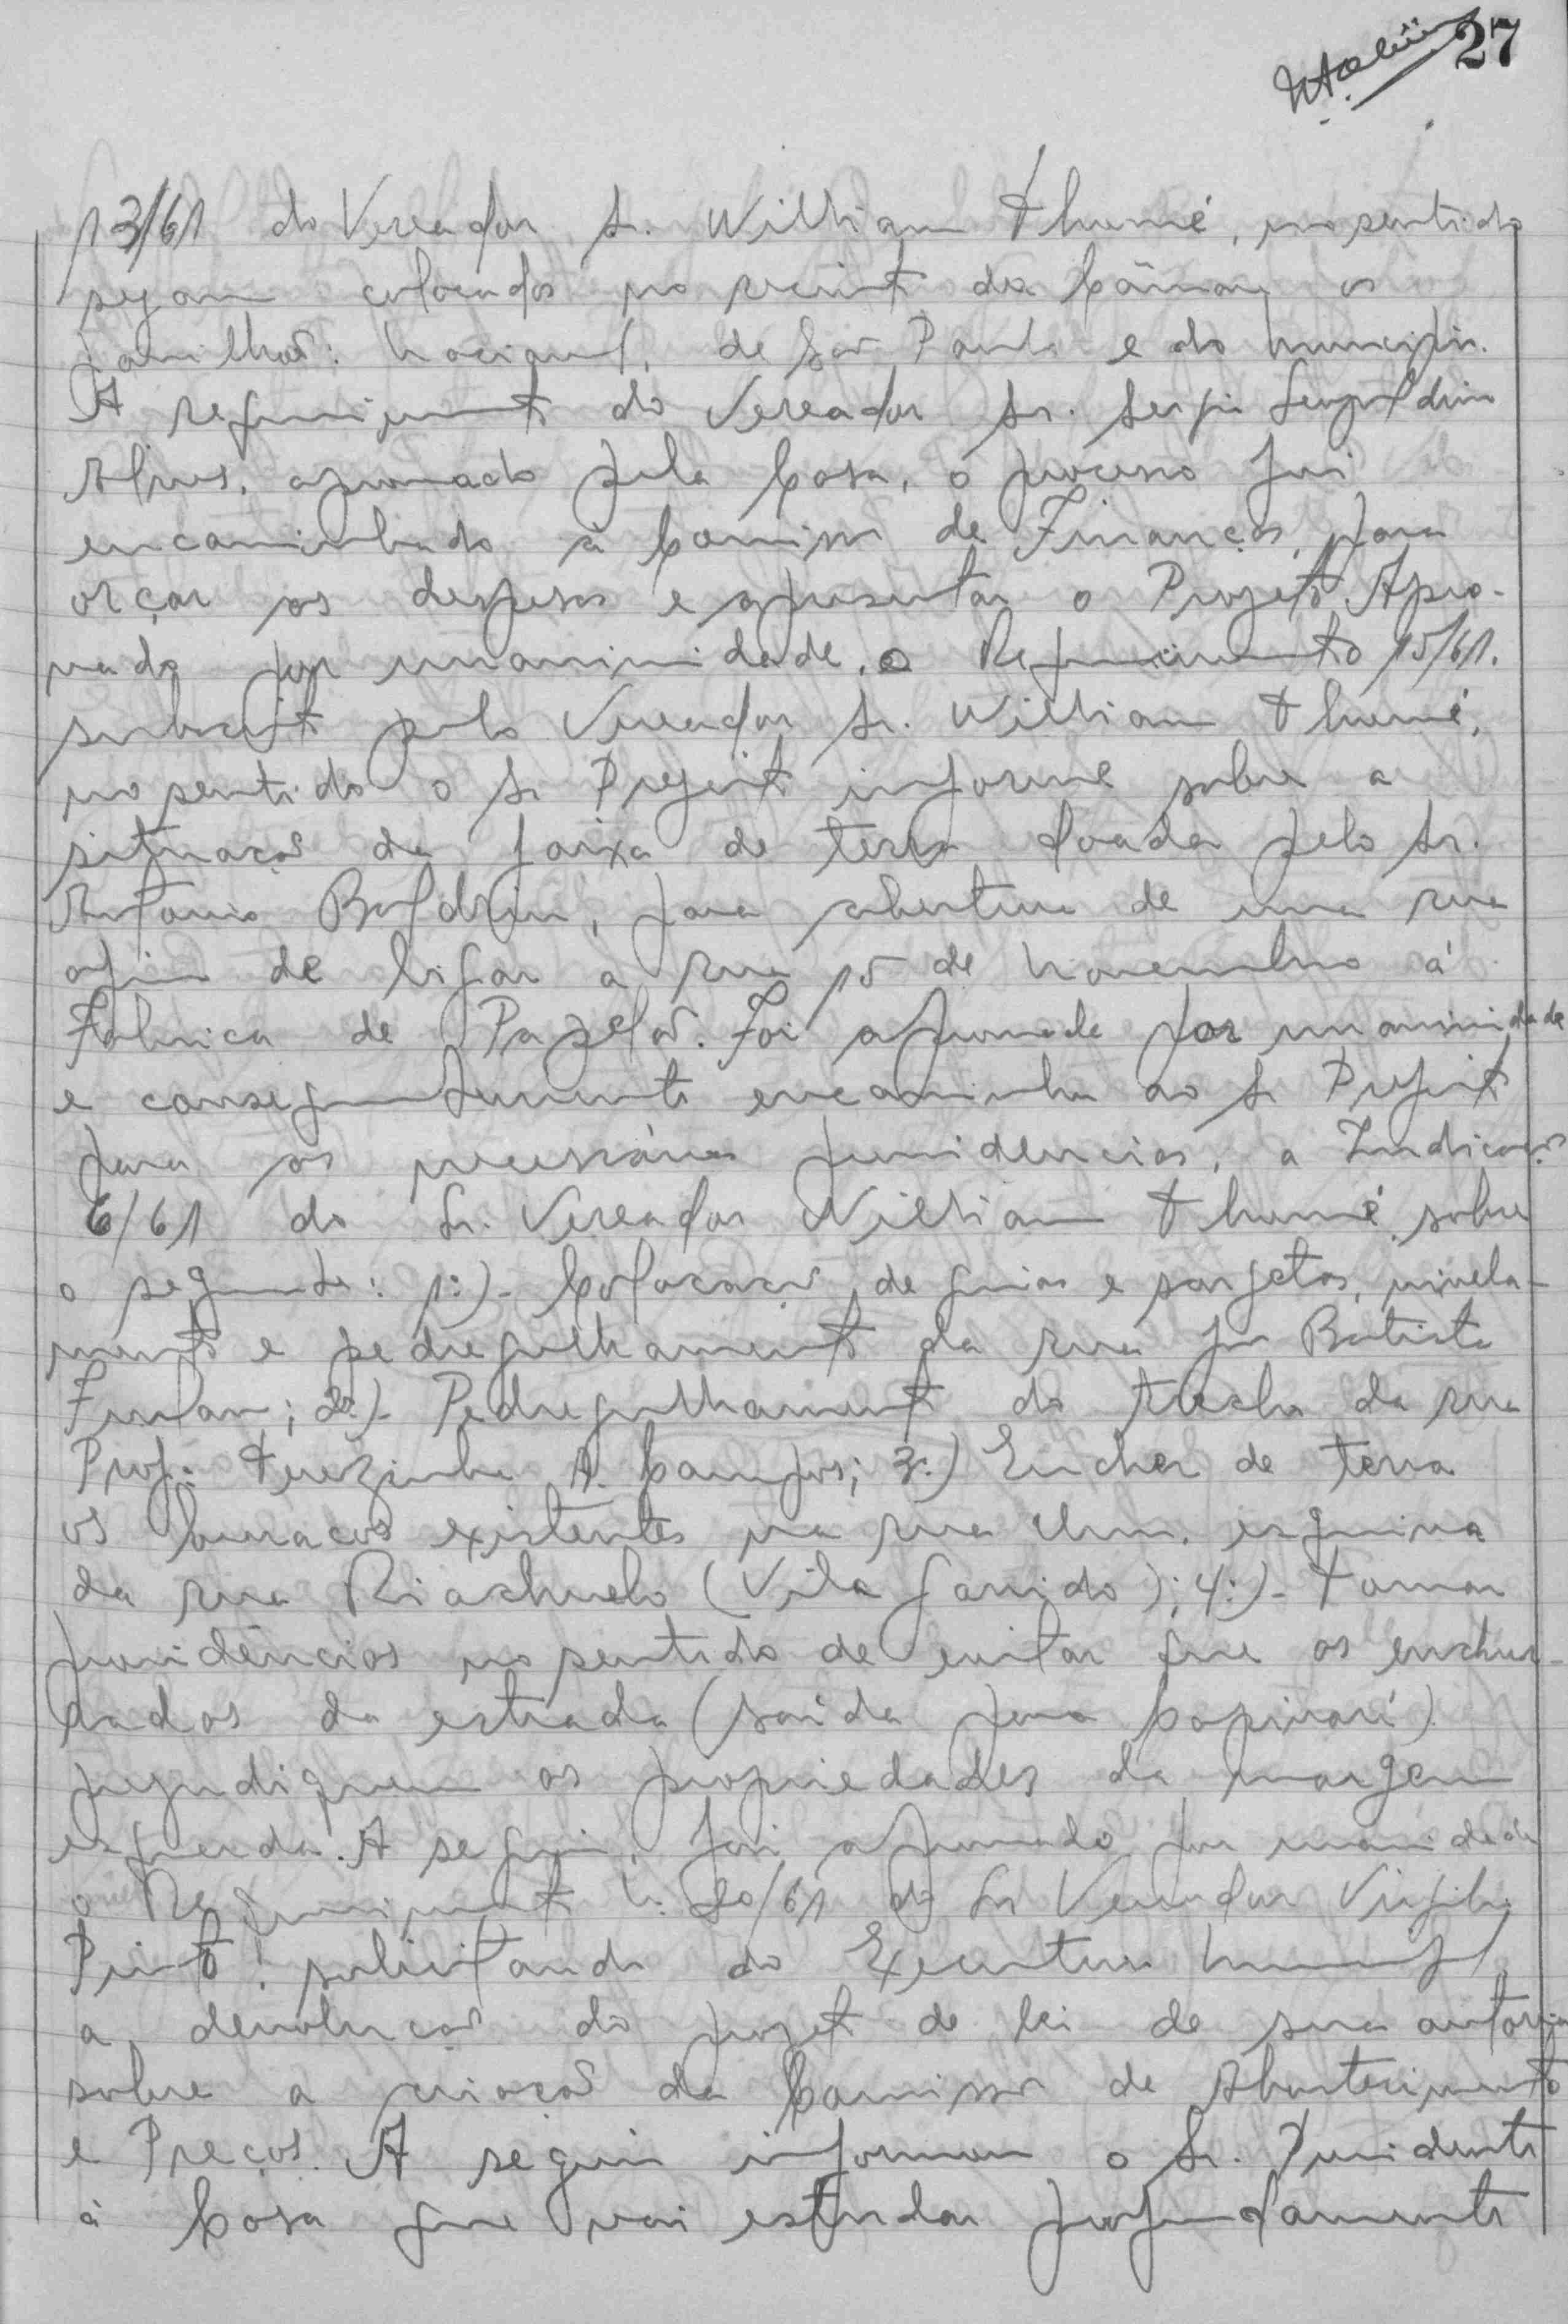 27
13/61 do Vereador Sr. Willian Thumé, no sentido
sejam colocados no recinto da Câmara os
pavilhões: Nacional, de São Paulo e do Município.
A requerimento do Vereador Sr. Sergio Leopoldino
Alves, aprovado pela Casa, o processo foi
encaminhado à Comissão de Finanças, para
orçar as despesas e apresentar o Projeto. Apro-
vado por unanimidade, o Requerimento 15/61.
subscrito pelo Vereador Sr. Willian Thumé,
no sentido o Sr Prefeito informe sobre a
situação da faixa de terra doada pelo Sr.
Antonio Boldrin, para abertura de uma rua
afim de ligar a rua 15 de Novembro á
Fabrica de Papelão. Foi aprovada por unanimidade
e consequentemente encaminha ao Sr Prefeito
para as necessárias providencias, a Indicação
6/61 do Sr. Vereador Willian Thumé, sobre
o segundo: 1:)- Colocação de guias e sargetas, nivela-
mento e pedregulhamento da rua Batista
Furlan; 2:)- Pedregulhamento do trecho da rua
Prof: Terezinha A. Campos; 3:) Encher de terra
os buracos existentes na rua Um, esquina
da rua Riachuelo (Vila Garrido); 4:)- Tomar
providências no sentido de evitar que as enchur-
radas da estrada (saída para Capivari)
prejudiquem as propriedades da margem
esquerda. A seguir, foi aprovado por unanimidade
o Requerimento N: 20/61 do Sr Vereador Virgilio
Pinto: solicitando do Executivo Municipal
a devolução do projeto de lei de sua autoria
sobre a criação da Comissão de Abastecimento
e Preços. A seguir informou o Sr. Presidente
à Casa que vai estudar profundamente